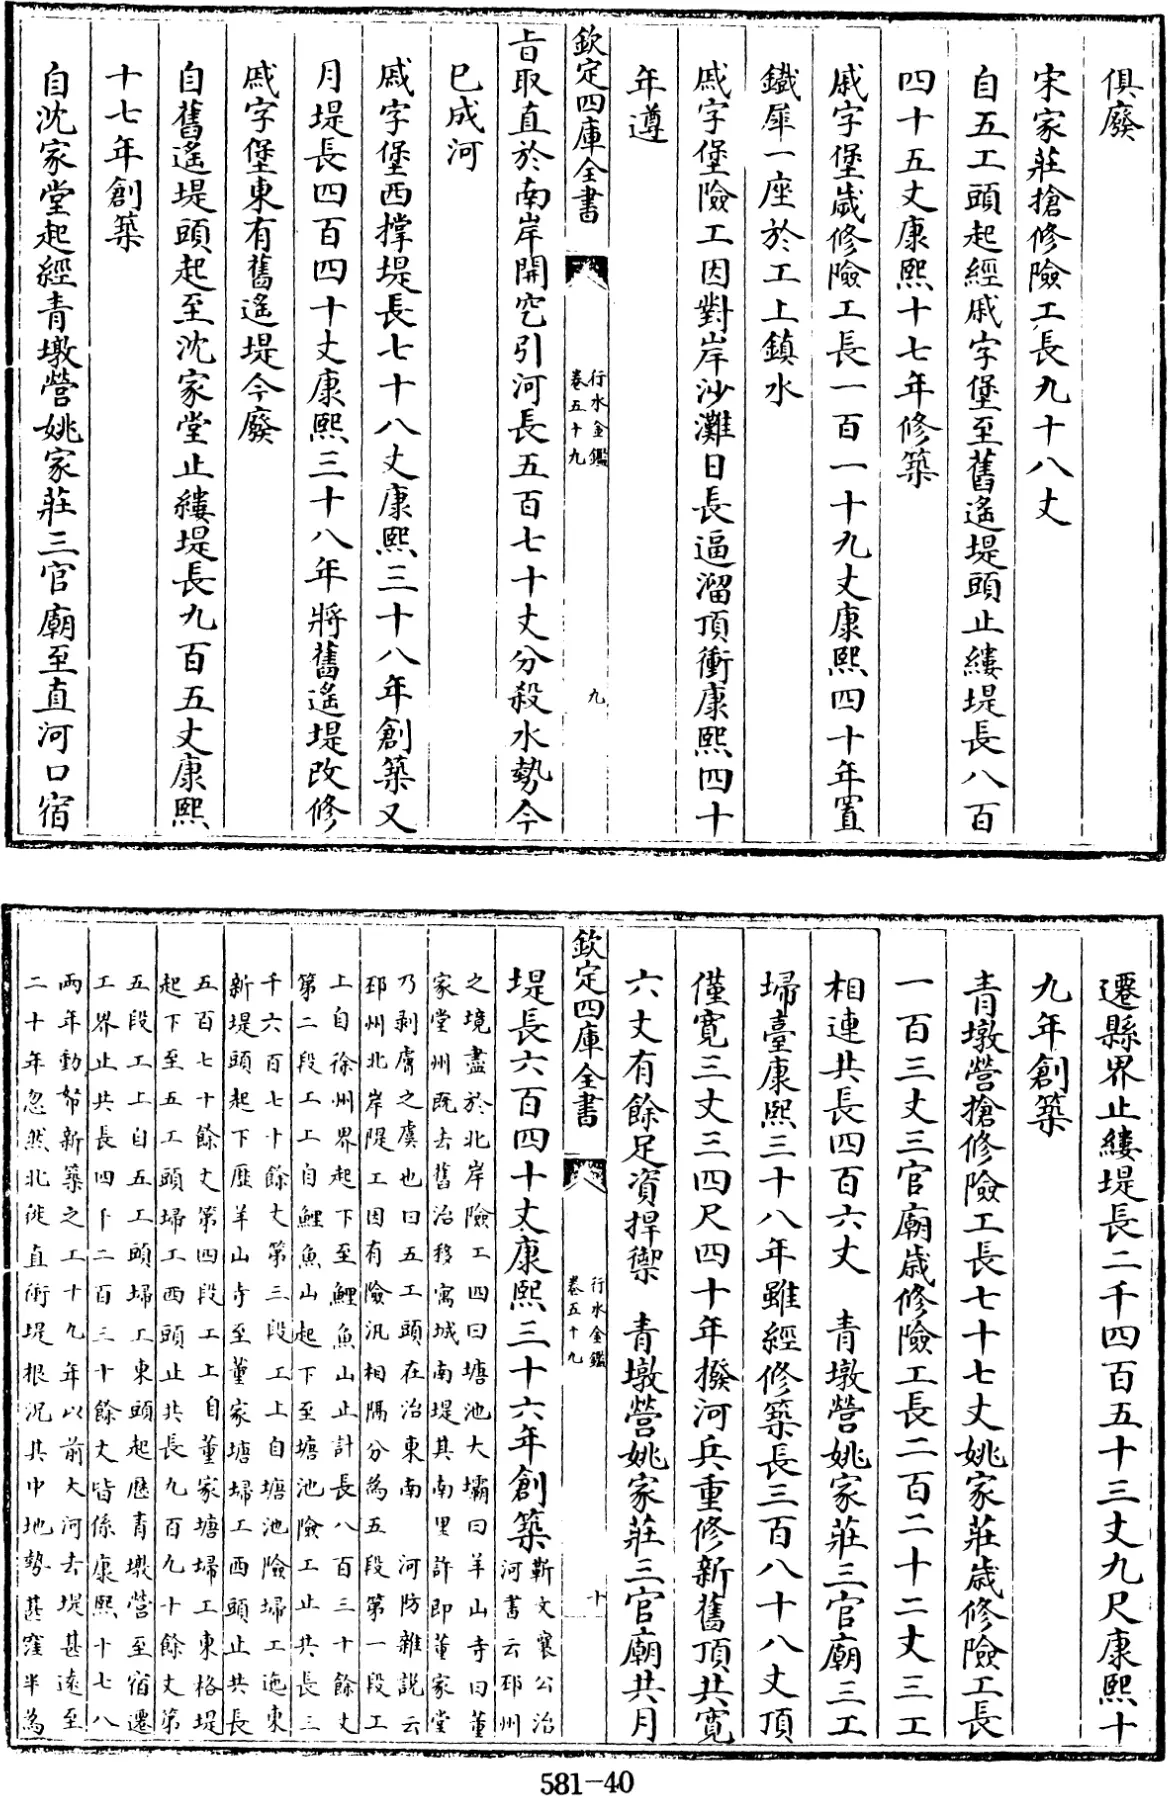 俱廢
宋家莊搶修險工長九十八丈
自五工頭起經戚字堡至舊遙堤頭止縷堤長八百
四十五丈康熙十七年修築
戚字堡歲修險工長一百一十九丈康熙四十年置
鐵犀一座於工上鎮水
戚字堡險工因對岸沙灘日長逼溜頂衝康熙四十
年遵
欽定四庫全書
行水金鑑
卷五十九
九
旨取直於南岸開挖引河長五百七十丈分殺水勢今
已成河
戚字堡西撐堤長七十八丈康熙三十八年創築又
月堤長四百四十丈康熙三十八年將舊遙堤改修
戚字堡東有舊遙堤今廢
自舊遙堤頭起至沈家堂止縷堤長九百五丈康熙
十七年創築
自沈家堂起經青墩營姚家莊三官廟至直河口宿
遷縣界止縷堤長二千四百五十三丈九尺康熙十
九年創築
青墩營搶修險工長七十七丈姚家莊歲修險工長
一百三丈三官廟歲修險工長二百二十二丈三工
相連共長四百六丈　青墩營姚家莊三官廟三工
埽臺康熙三十八年雖經修築長三百八十八丈頂
僅寬三丈三四尺四十年撥河兵重修新舊頂共寬
六丈有餘足資捍禦　青墩營姚家莊三官廟共月
欽定四庫全書
行水金鑑
卷五十九
十
堤長六百四十丈康熙三十六年創築
靳文襄公治
河書云邳州
之境盡於北岸險工四曰塘池大壩曰羊山寺曰董
家堂州旣去舊治移寓城南堤其南里許即董家堂
乃剥膚之虞也曰五工頭在治東南　河防雜說云
邳州北岸隄工因有險汛相隔分為五段第一段工
上自徐州界起下至鯉魚山止計長八百三十餘丈
第二段工上自鯉魚山起下至塘池險工止共長三
千六百七十餘丈第三段工上自塘池險埽工迤東
新堤頭起下歷羊山寺至董家塘埽工西頭止共長
五百七十餘丈第四段工上自董家塘埽工東格堤
起下至五工頭埽工西頭止共長九百九十餘丈第
五段工上自五工頭埽工東頭起歷青墩營至宿遷
工界止共長四千二百三十餘丈皆係康熙十七八
兩年動帑新築之工十九年以前大河去堤甚遠至
二十年忽然北徙直衝堤根況其中地勢甚窪半為
581-40